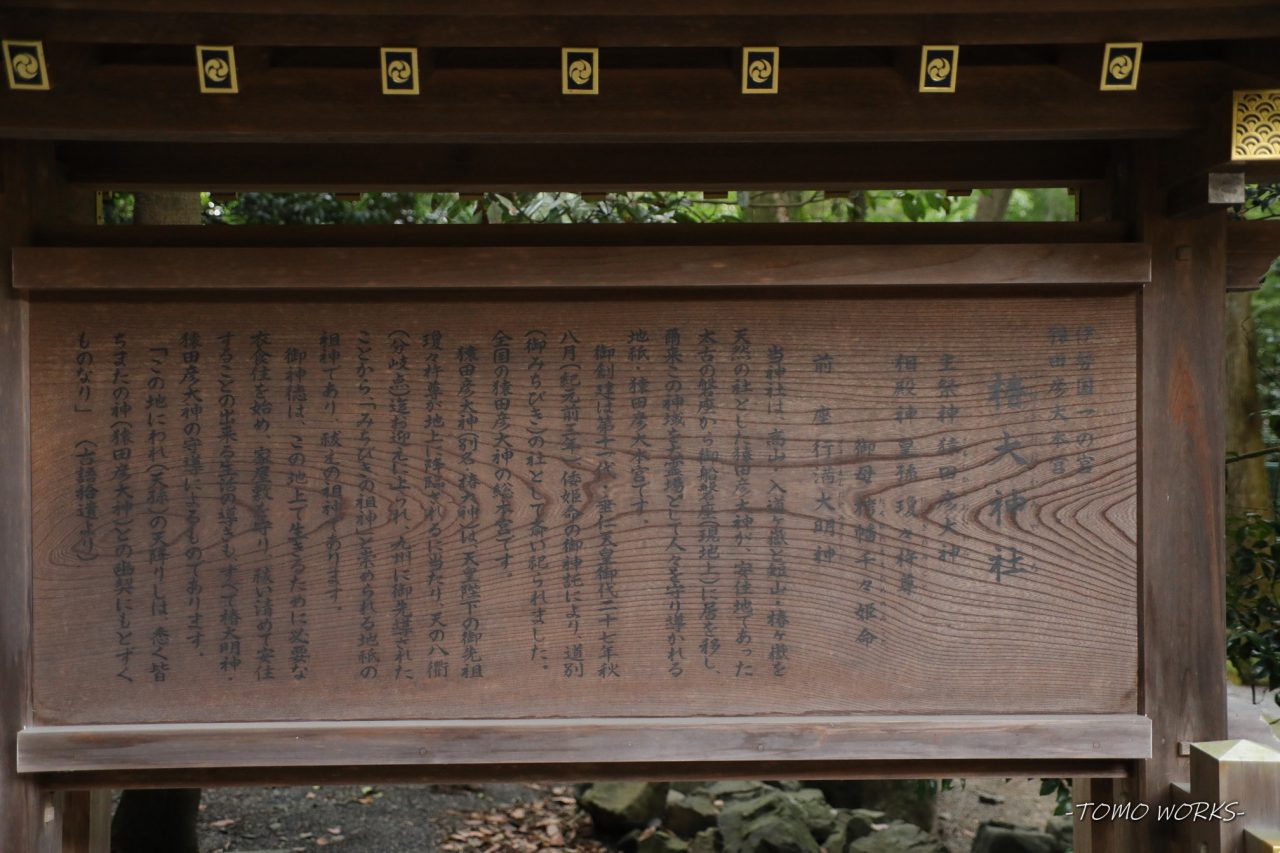 伊勢国一の宮
猿田彦大本宮
椿大神社
主祭神 猿田彦大神
相殿神 皇孫 瓊々杵尊
御母 栲幡千々姫命
前座 行満大明神
当神社は、高山・入道ヶ嶽と短山・椿ヶ嶽を
天然の社とした猿田彦大神が、安住地であった
太古の磐座から御船磐座(現地上)に居を移し、
爾来この神域を土霊場として人々を守り導かれる
地祇・猿田彦大本宮です。
御創建は第十一代・垂仁天皇御代二十七年秋
八月(紀元前三年)、倭姫命の御神託により、道別
(御みちびき)の社として斎い祀られました。
全国の猿田彦大神の総本宮です。
猿田彦大神(別名・椿大神)は、天皇陛下の御先祖
瓊々杵尊が地上に降臨されるに当たり、天の八衢
(分岐点)迄お迎えに上られ、九州に御先導された
ことから、「みちびきの祖神」と崇められる地祇の
祖神であり、祓えの祖神であります。
御神徳は、この地上で生きるために必要な
衣食住を始め、家屋敷を守り、祓い清めて安住
することの出来る生活の導きも、すべて椿大明神・
猿田彦大神の守導によるものであります。
「この地にわれ(天孫)の天降りしは、悉く皆
ちまたの神(猿田彦大神)との幽契にもとずく
ものなり」 (古語拾遺より)
-TOMO WORKS-